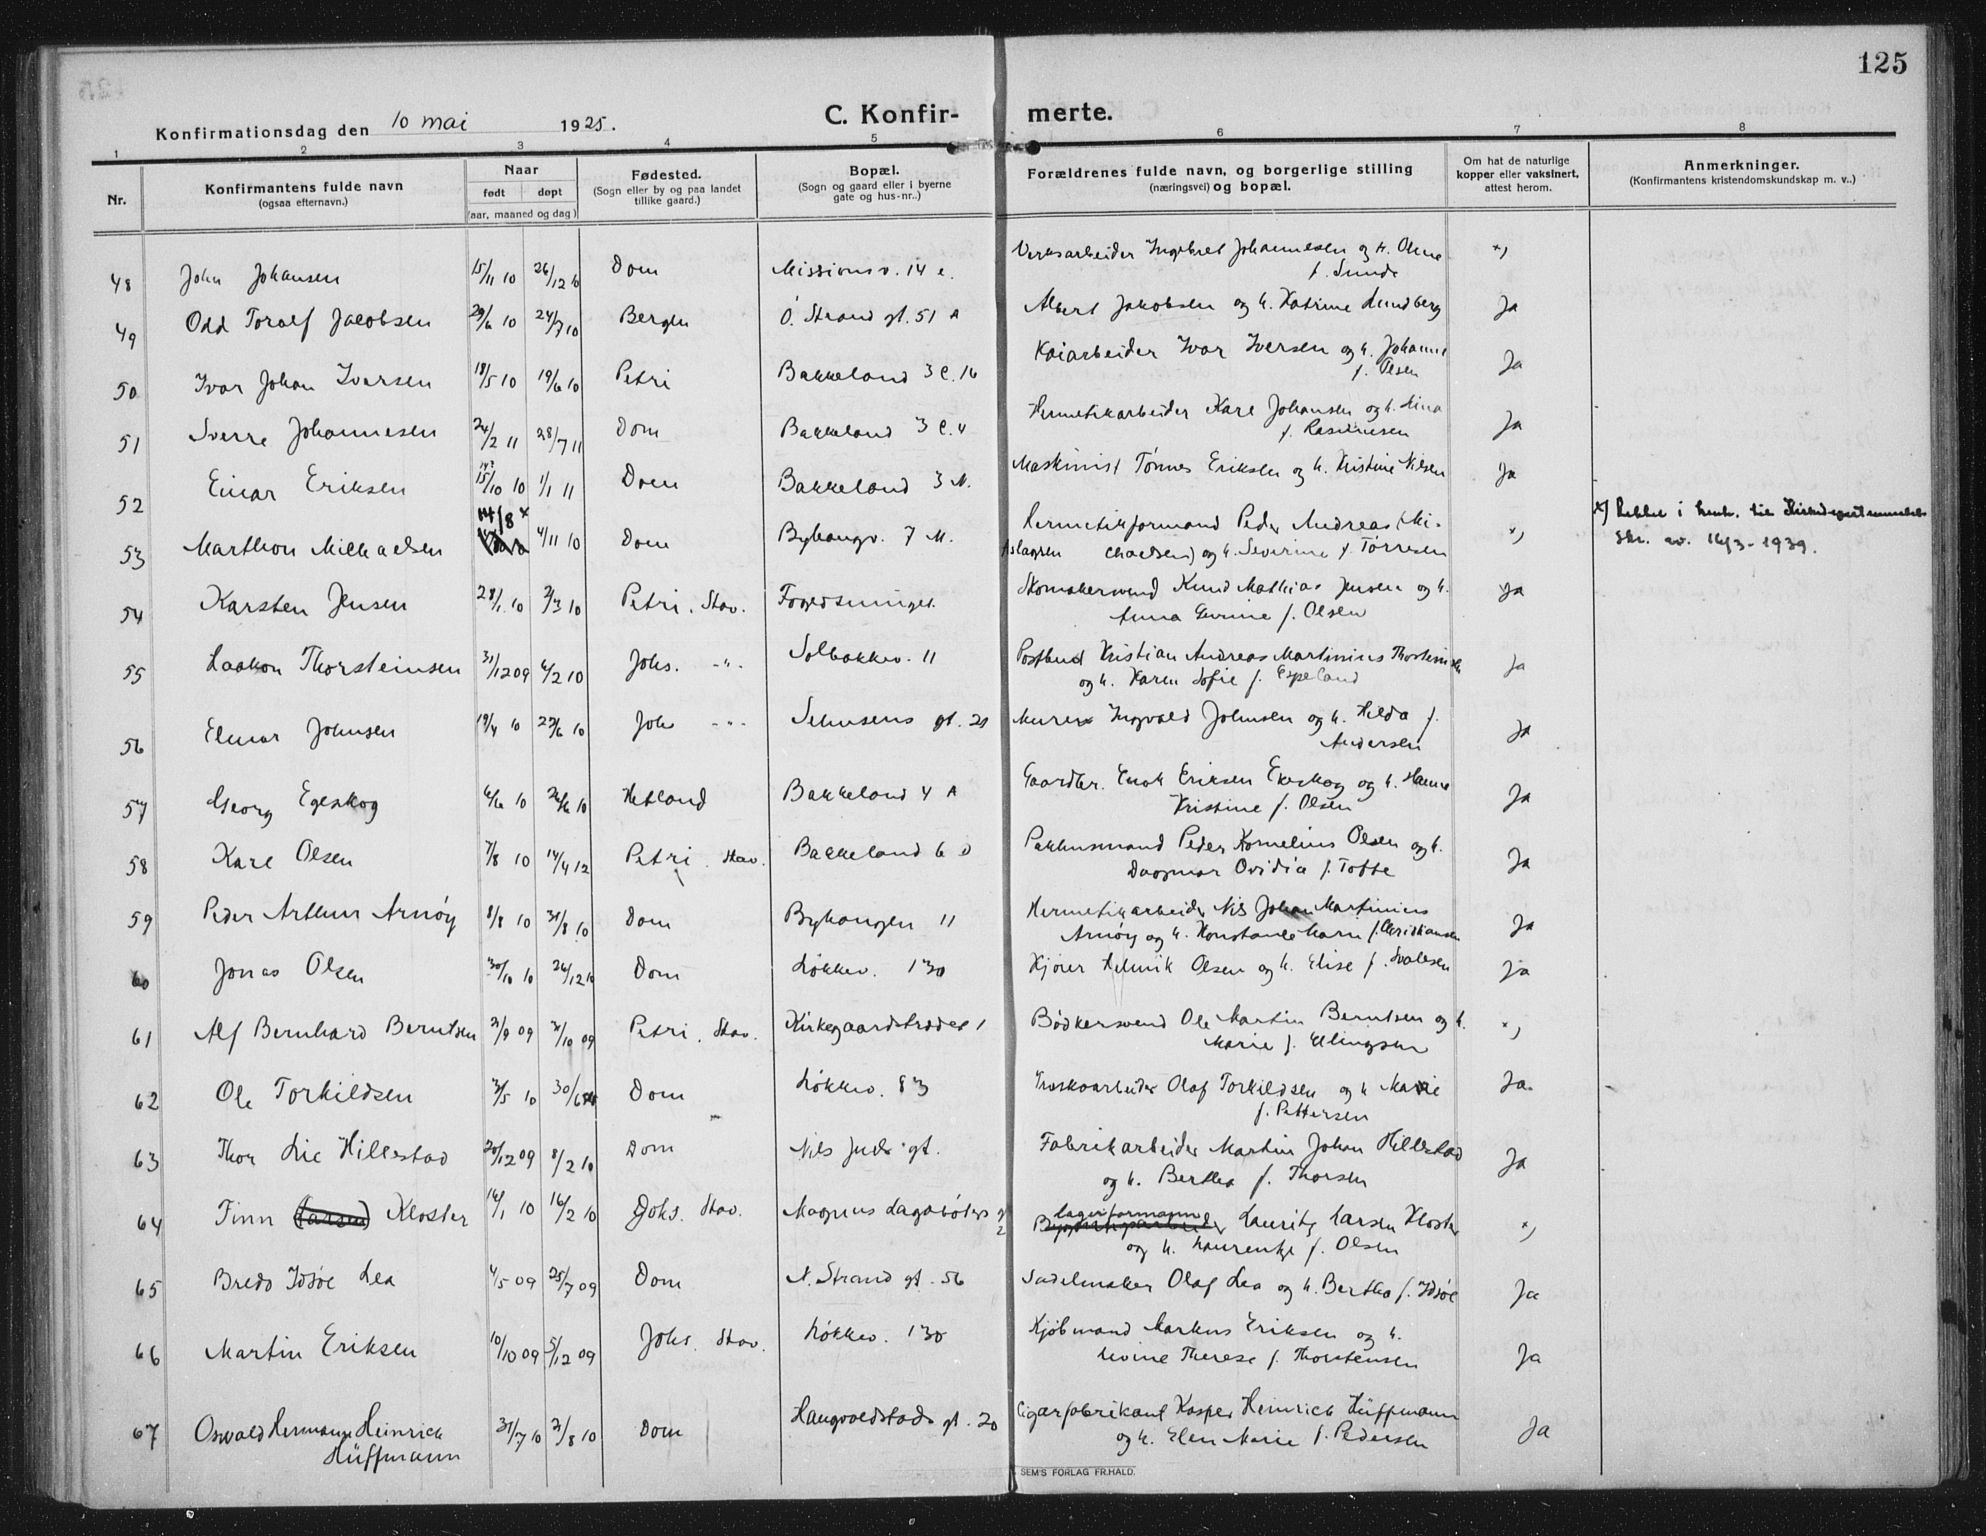 125
Konfirmationsdag den 10 mai 1925.
C. Konfir- merte.
1 2 3 4 5 6 7 8
Nr. Konfirmantens fulde navn (ogsaa efternavn.) Naar født døpt (aar, maaned og dag) Fødested. (Sogn eller by og paa landet tillike gaard.) Bopæl. (Sogn og gaard eller i byerne gate og hus-nr.) Forældrenes fulde navn, og borgerlige stilling (næringsvei) og bopæl. Om hat de naturlige kopper eller vaksinert, attest herom. Anmerkninger. (Konfirmantens kristendomskundskap m. v..)
48 John Johansen 15/11 10 26/12 10 Dom Missionsv. 14 e. Verksarbeider Ingebret Johannesen og h. Oline f. Sunde x)
49 Odd Toralf Jacobsen 29/6 10 24/7 10 Bergen Ö. Strand gt. 51 A Albert Jakobsen og h. Katrine Lundberg Ja
50 Ivar Johan Iversen 18/5 10 19/6 10 Petri Bakkeland 3 C. 16 Kaiarbeider Ivar Iversen og h. Johanne f. Olsen Ja
51 Sverre Johannesen 24/2 11 28/7 11 Dom Bakkeland 3 C. 4 Hermetikarbeider Karl Johansen og h. Lina f. Rasmussen Ja
52 Einar Eriksen 15/10 10 1/1 11 Dom Bakkeland 3 N. Maskinist Tønnes Eriksen og h. Kristine Nilsen Ja
53 Marthon Mikkaelsen 14/8 x 4/11 10 Dom Byhaugv. 7 M. Hermetikformand Peder Andreas (Mi-
Aslagsen chaelsen) og h. Severine f. Tørresen x)
x) Rettet i henh. til Kirkedepartementets
skr. av. 16/3 - 1939.
54 Karsten Jensen 28/1 10 2/3 10 Petri. Stav. Fogedsmuget. Skomakersvend Knud Mathias Jensen og h. Anna Gurine f. Olsen Ja
55 Haakon Thorsteinsen 31/12 09 6/2 10 Johs. -"- Solbakkev. 11 Postbud Kristian Andreas Martinius Thorsteinsen og h. Karen Sofie f. Espeland Ja
56 Elmar Johnsen 19/4 10 22/6 10 Joh -"- gt. 21 Murer Ingvald Johnsen og h. Hilda f. Andersen Ja
57 Georg Egeskog 6/6 10 26/6 10 Hetland Bakkeland 4 A Gaardbr. Enok Eriksen Ekeskog og h. Hanne Kristine f. Olsen Ja
58 Karl Olsen 7/8 10 14/4 12 Petri. Stav. Bakkeland 6 D Pakhusmand Peder Kornelius Olsen og h. Dagmar Ovidia f. Tofte Ja
59 Peder Arthur Arnøy 8/8 10 31/8 10 Dom Byhaugen 11 Hermetikarbeider Nils Johan Martinius Arnøy og h. Konstanse Maria f. Christiansen Ja
60 Jonas Olsen 30/10 10 26/12 10 Dom Løkkev. 130 Kjører Helmik Olsen og h. Elise f. Svalesen ja
61 Alf Bernhard Berntsen 21/9 09 31/10 09 Petri. Stav. Kirkegaardstrædet 1 Bødkersvend Ole Martin Berntsen og h. Marie f. Ellingsen x)
62 Ole Torkildsen 3/5 10 30/6 Dom Løkkev. 83 Træskoarbeider Olaf Torkildsen og h Marie f. Pettersen Ja
63 Thor Lie Hillestad 20/12 09 8/2 10 Dom Nils Juels gt. Fabrikarbeider Martin Johan Hillestad og h. Bertha f. Thorsen Ja
64 Finn (Larsen) Kloster 14/1 10 16/2 10 Johs. Stav. Magnus Lagabøters gt 2 lagerformann Lauritz Larsen Kloster og h. Laurentze f. Olsen x)
65 Bredo Idsøe Lea 4/5 09 25/7 09 Dom N. Strand gt. 56 Sadelmaker Olaf Lea og h. Bertha f. Idsøe Ja
66 Martin Eriksen 10/10 09 5/12 09 Johs. Stav. Løkkev. 130 Kjøbmand Markus Eriksen og h. Lovine Therese f. Thorstensen Ja
67 Oswald Hermann Heinrich Hüffmann 31/7 10 21/8 10 Dom Haugvaldstads gt. 20 Cigarfabrikant Kasper Heinrich Hüffmann og h. Elen Marie f. Pedersen Ja
SEM'S FORLAG FR.HALD.